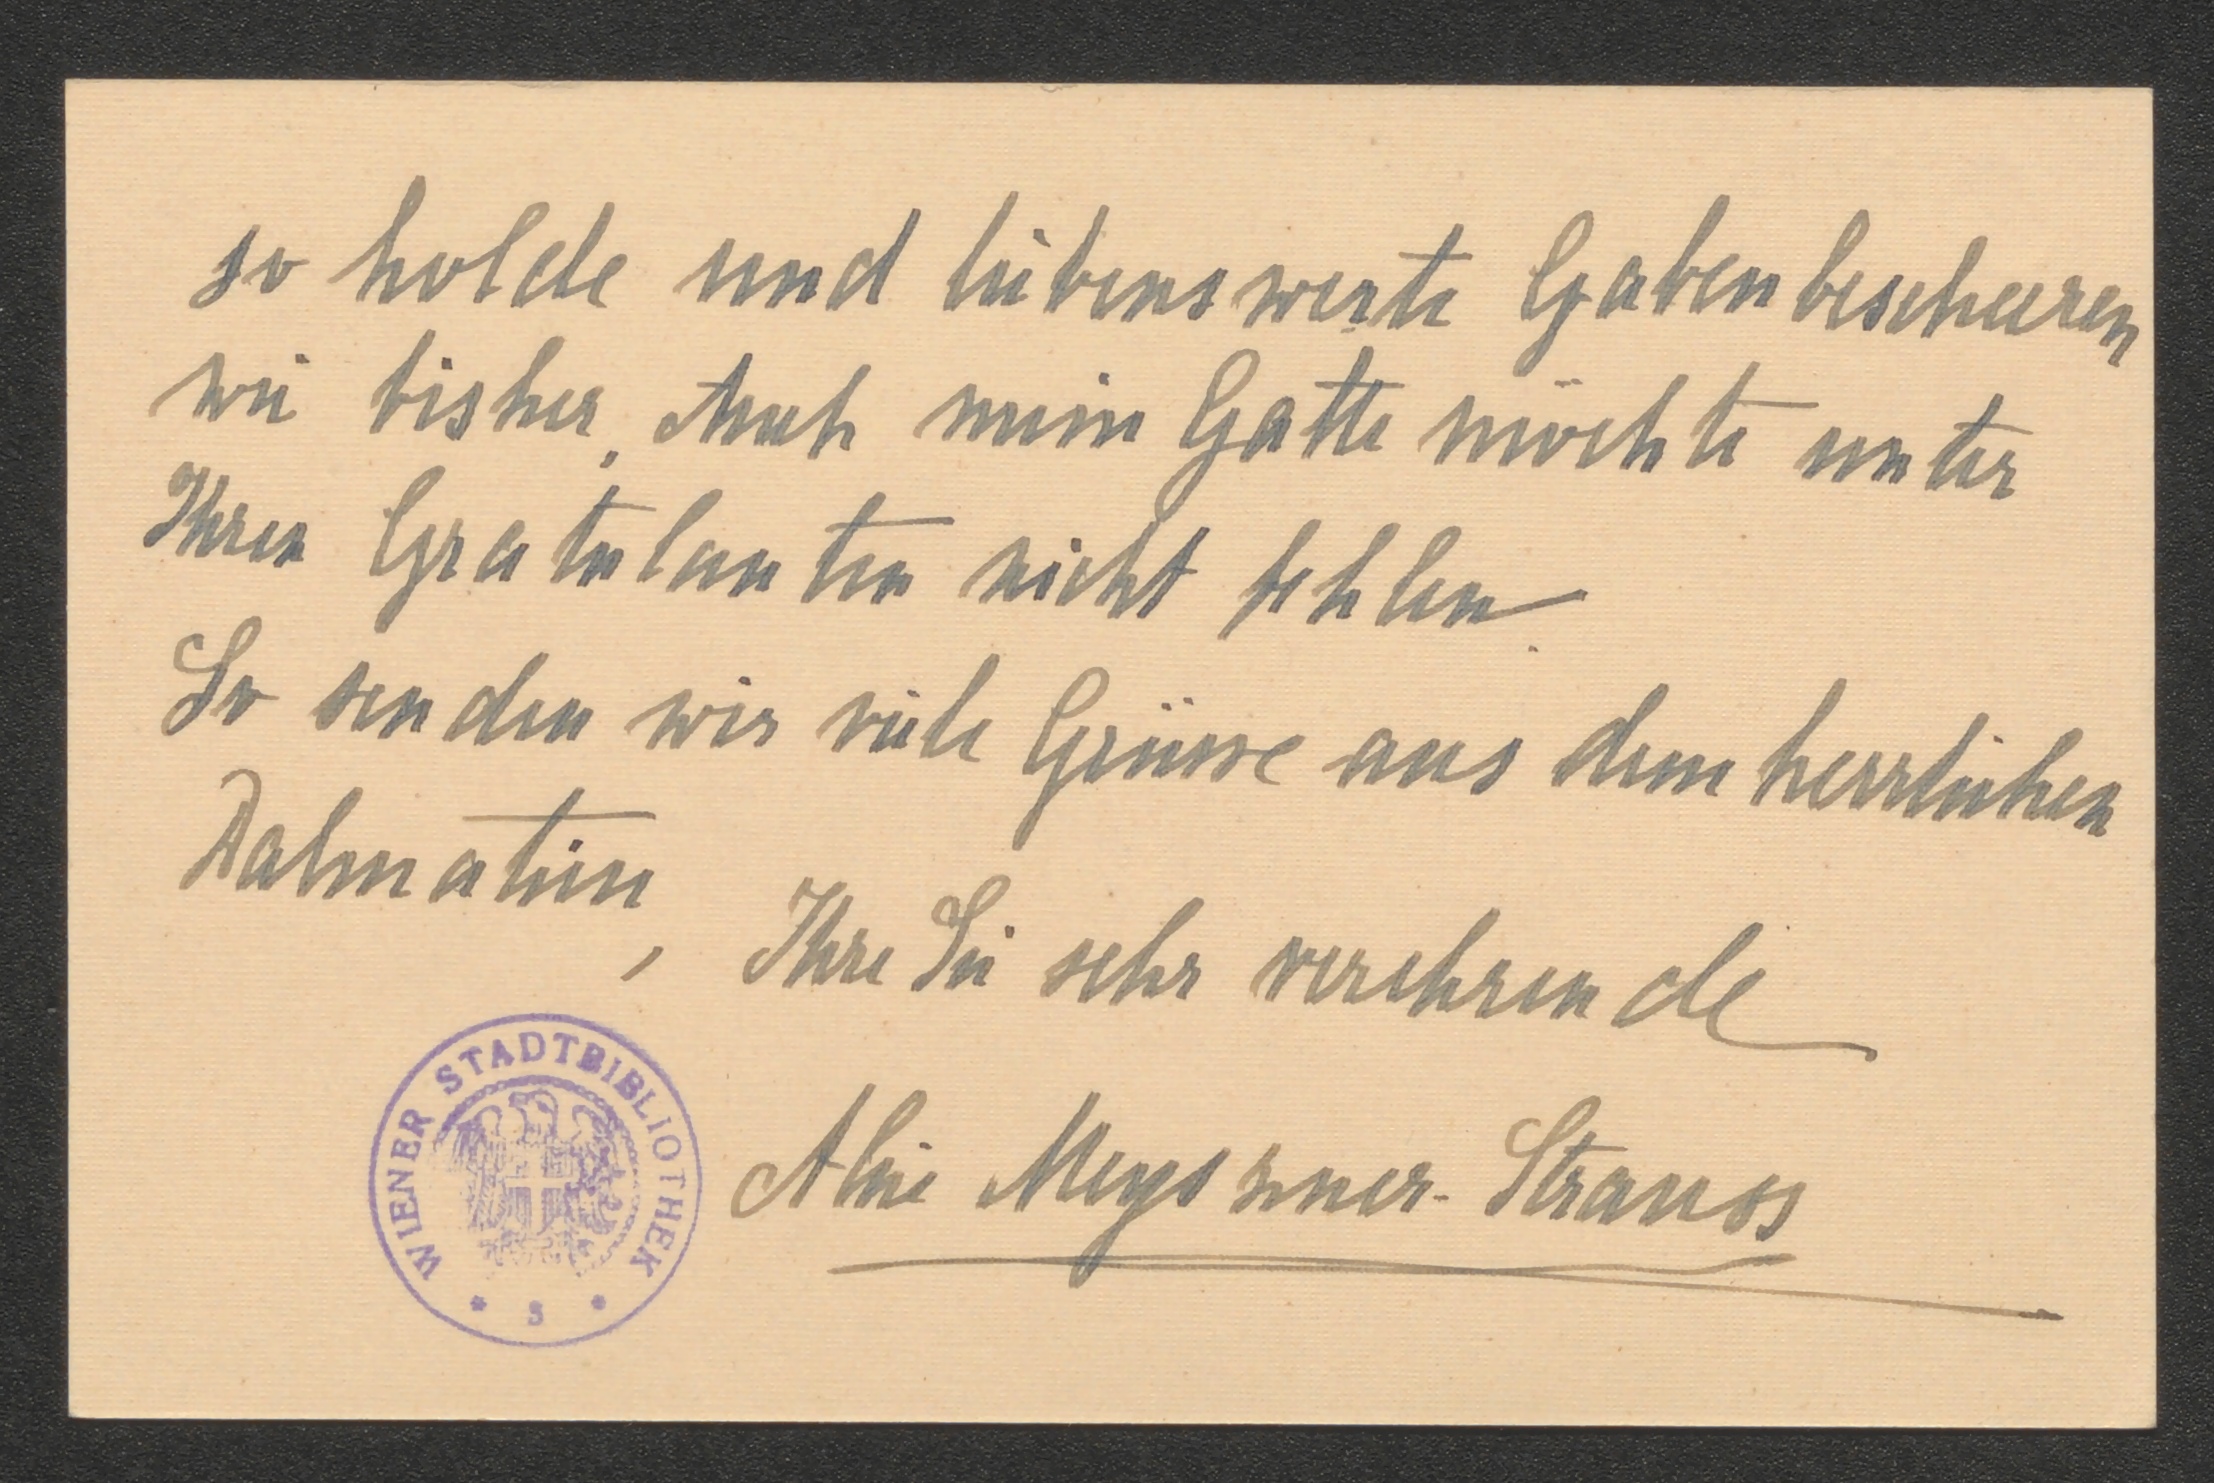 so holde und liebenswerte Gaben bescheeren
wie bisher. Auch mein Gatte möchte unter
Ihren Gratulanten nicht fehlen.
So senden wir viele Grüsse aus dem herrlichen
Dalmatien,
Ihre Sie sehr verehrende
Alice Meyszner-Strauss
WIENER STADTBIBLIOTHEK
* S *